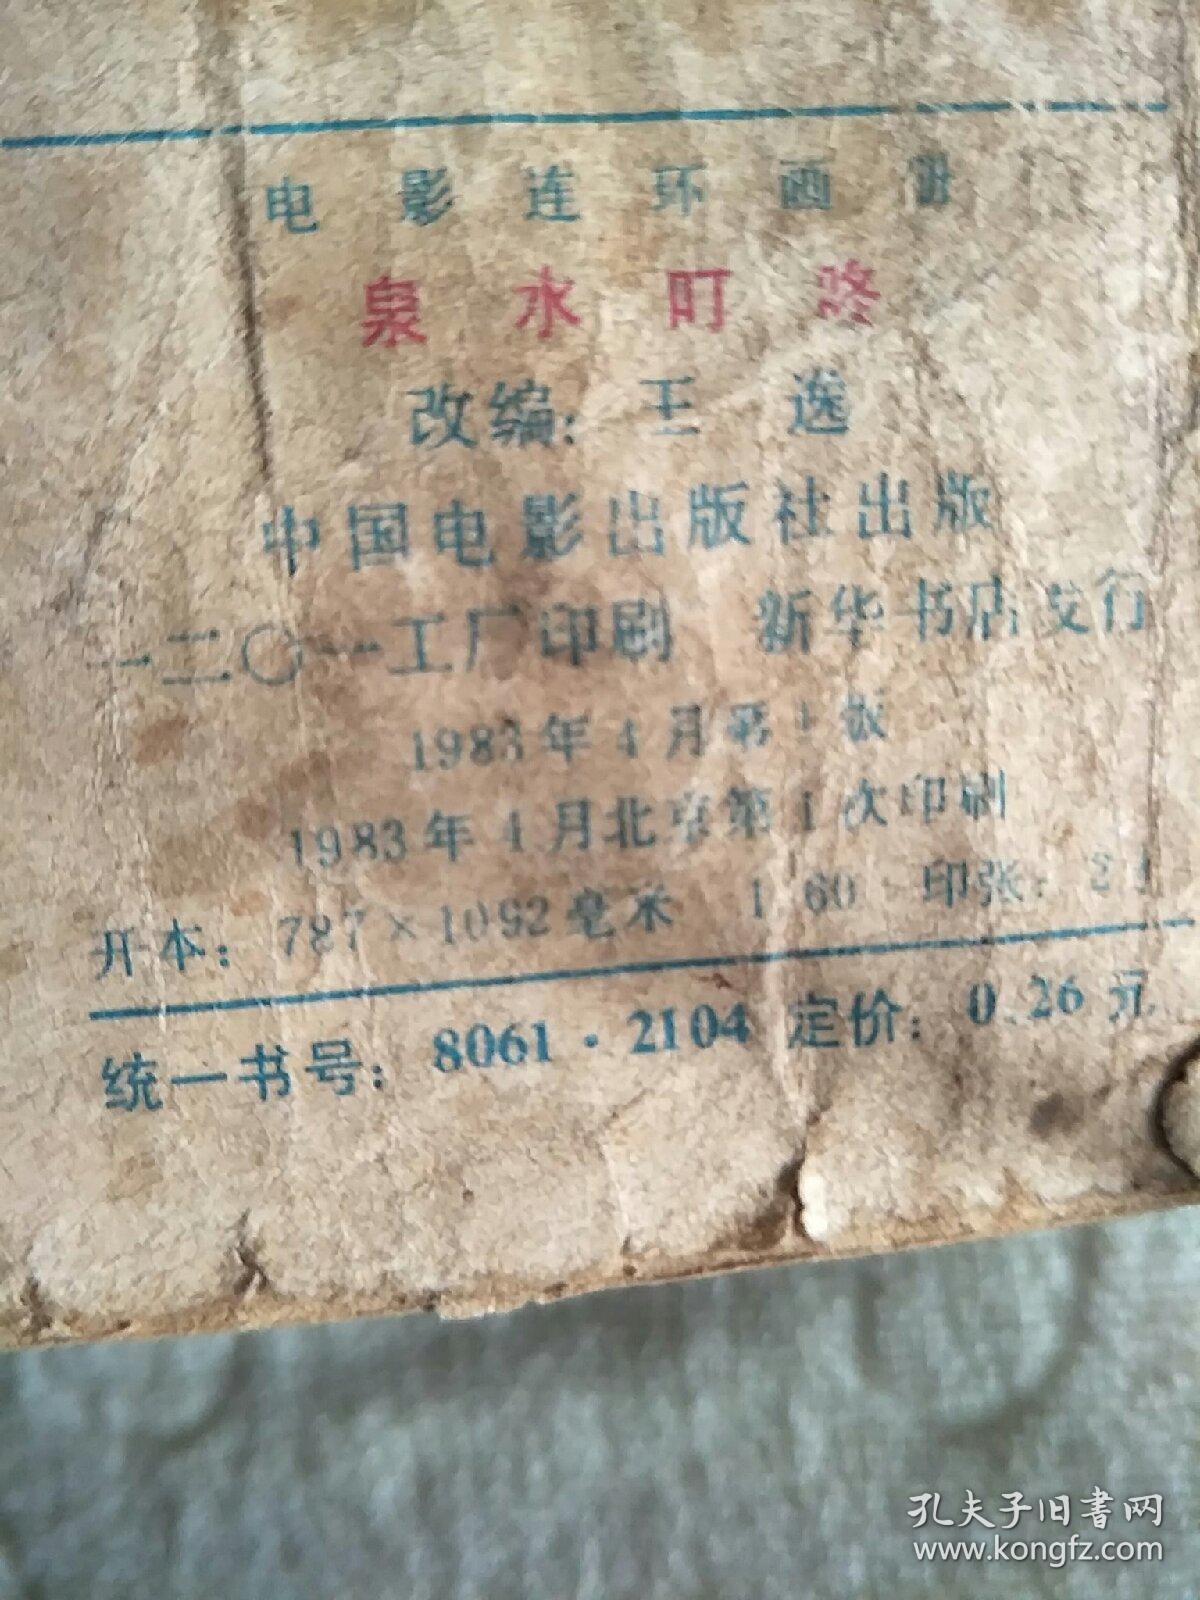 电影连环画册
泉水叮咚
改编：王逸
中国电影出版社出版
一二〇一工厂印刷 新华书店发行
1983年4月第1版
1983年4月北京第1次印刷
开本：787×1092毫米 1 60 印张：
统一书号：8061·2104 定价：0.26元
孔夫子旧书网
www.kongfz.com